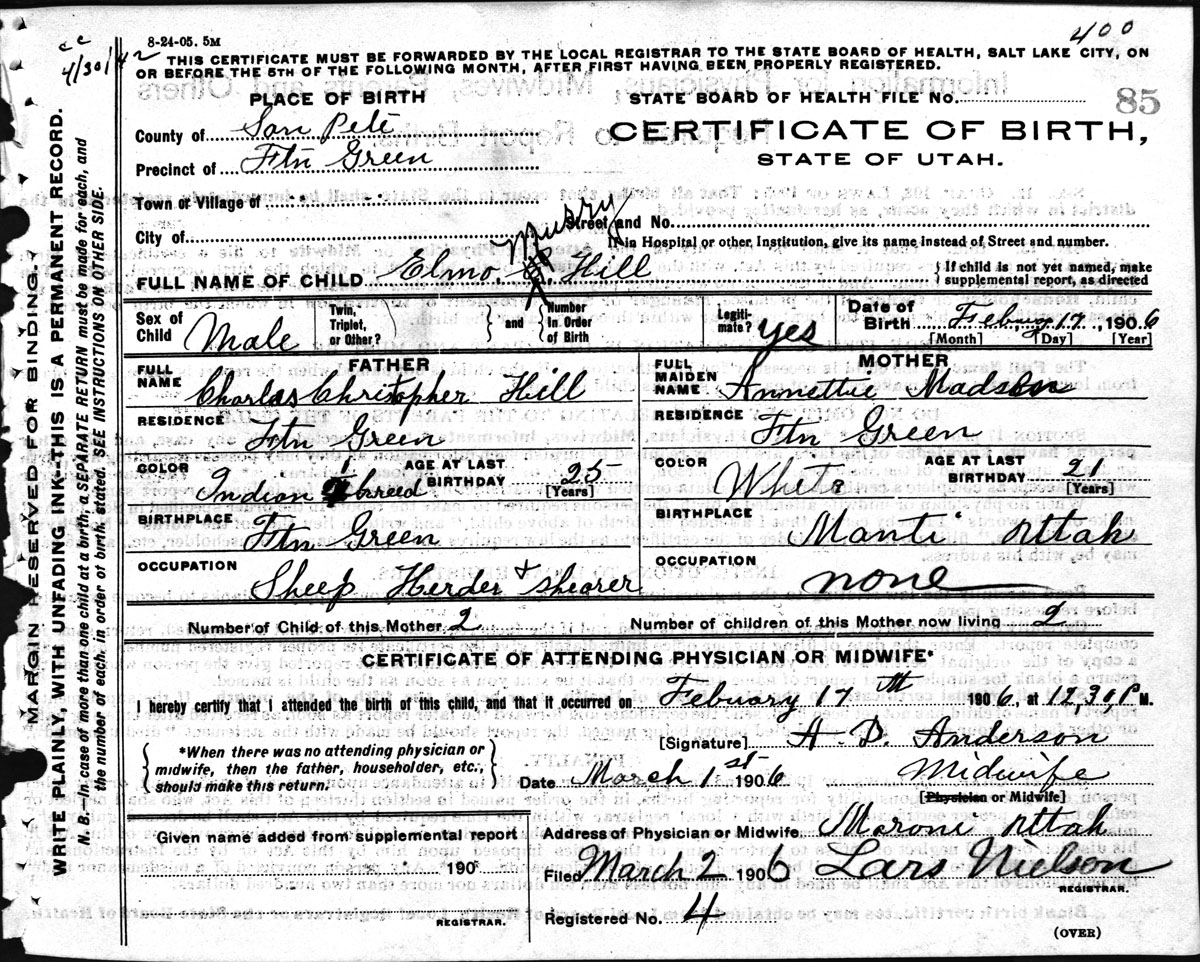 400
cc
4/30/42
8-24-05. 5M
THIS CERTIFICATE MUST BE FORWARDED BY THE LOCAL REGISTRAR TO THE STATE BOARD OF HEALTH, SALT LAKE CITY, ON
OR BEFORE THE 5TH OF THE FOLLOWING MONTH, AFTER FIRST HAVING BEEN PROPERLY REGISTERED.
MARGIN RESERVED FOR BINDING.
WRITE PLAINLY, WITH UNFADING INK—THIS IS A PERMANENT RECORD.
N. B.—In case of more than one child at a birth, a SEPARATE RETURN must be made for each, and
the number of each, in order of birth, stated. SEE INSTRUCTIONS ON OTHER SIDE.
PLACE OF BIRTH
STATE BOARD OF HEALTH FILE No.
85
County of San Pete
CERTIFICATE OF BIRTH,
Precinct of Ftn Green
STATE OF UTAH.
Town or Village of
Street and No.
City of
If in Hospital or other Institution, give its name instead of Street and number.
Murry
FULL NAME OF CHILD Elmo. C. Hill
{ If child is not yet named, make
supplemental report, as directed
Sex of Child Male
Twin, Triplet, or Other?
and
Number In Order of Birth
Legiti-mate? yes
Date of Birth Febuary 17, 1906
[Month] [Day] [Year]
FATHER
FULL NAME Charlas Christopher Hill
MOTHER
FULL MAIDEN NAME Annettie Madsen
RESIDENCE Ftn Green
RESIDENCE Ftn Green
COLOR Indian breed
AGE AT LAST BIRTHDAY 25 [Years]
COLOR White
AGE AT LAST BIRTHDAY 21 [Years]
BIRTHPLACE Ftn Green
BIRTHPLACE Manti Uttah
OCCUPATION Sheep Herder + shearer
OCCUPATION none
Number of Child of this Mother 2
Number of children of this Mother now living 2
CERTIFICATE OF ATTENDING PHYSICIAN OR MIDWIFE*
I hereby certify that I attended the birth of this child, and that it occurred on Febuary 17th 1906, at 12,30, P M.
{ *When there was no attending physician or
midwife, then the father, householder, etc.,
should make this return. }
[Signature] A. D. Anderson
Date March 1st 1906
Midwife
[Physician or Midwife]
Given name added from supplemental report
190
REGISTRAR.
Address of Physician or Midwife Moroni Uttah
Filed March 2 1906 Lars Nielson
REGISTRAR.
Registered No. 4
(OVER)